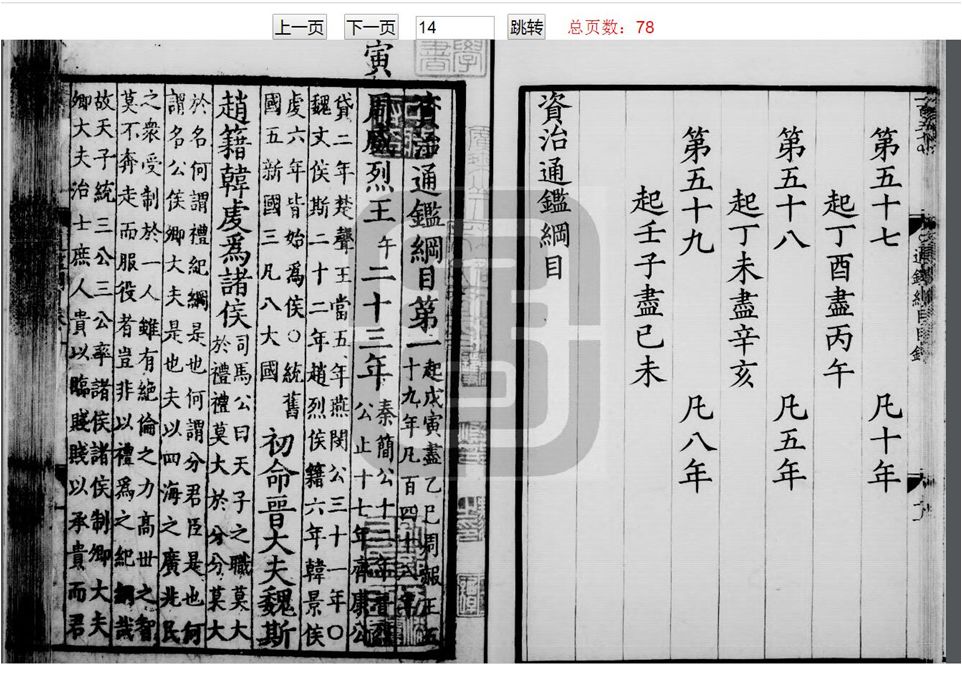 上一页 下一页 14 跳转 总页数：78
第五十七
起丁酉盡丙午 凡十年
第五十八
起丁未盡辛亥 凡五年
第五十九
起壬子盡己未 凡八年
資治通鑑綱目
寅
資治通鑑綱目第一 起戊寅盡乙巳周赧王五
十九年凡百四十八年
周威烈王 午 二十三年 秦簡公十二年晉烈
公止十七年齊康公
貸二年楚聲王當五年燕閔公三十一年○
魏文侯斯二十二年趙烈侯籍六年韓景侯
虔六年皆始爲侯○統舊
國五新國三凡八大國
初命晉大夫魏斯
趙籍韓虔爲諸侯 司馬公曰天子之職莫大
於禮禮莫大於分分莫大
於名何謂禮紀綱是也何謂分君臣是也何
謂名公侯卿大夫是也夫以四海之廣兆民
之衆受制於一人雖有絶倫之力高世之智
莫不奔走而服役者豈非以禮爲之紀綱哉
故天子統三公三公率諸侯諸侯制卿大夫
卿大夫治士庶人貴以臨賤賤以承貴而君